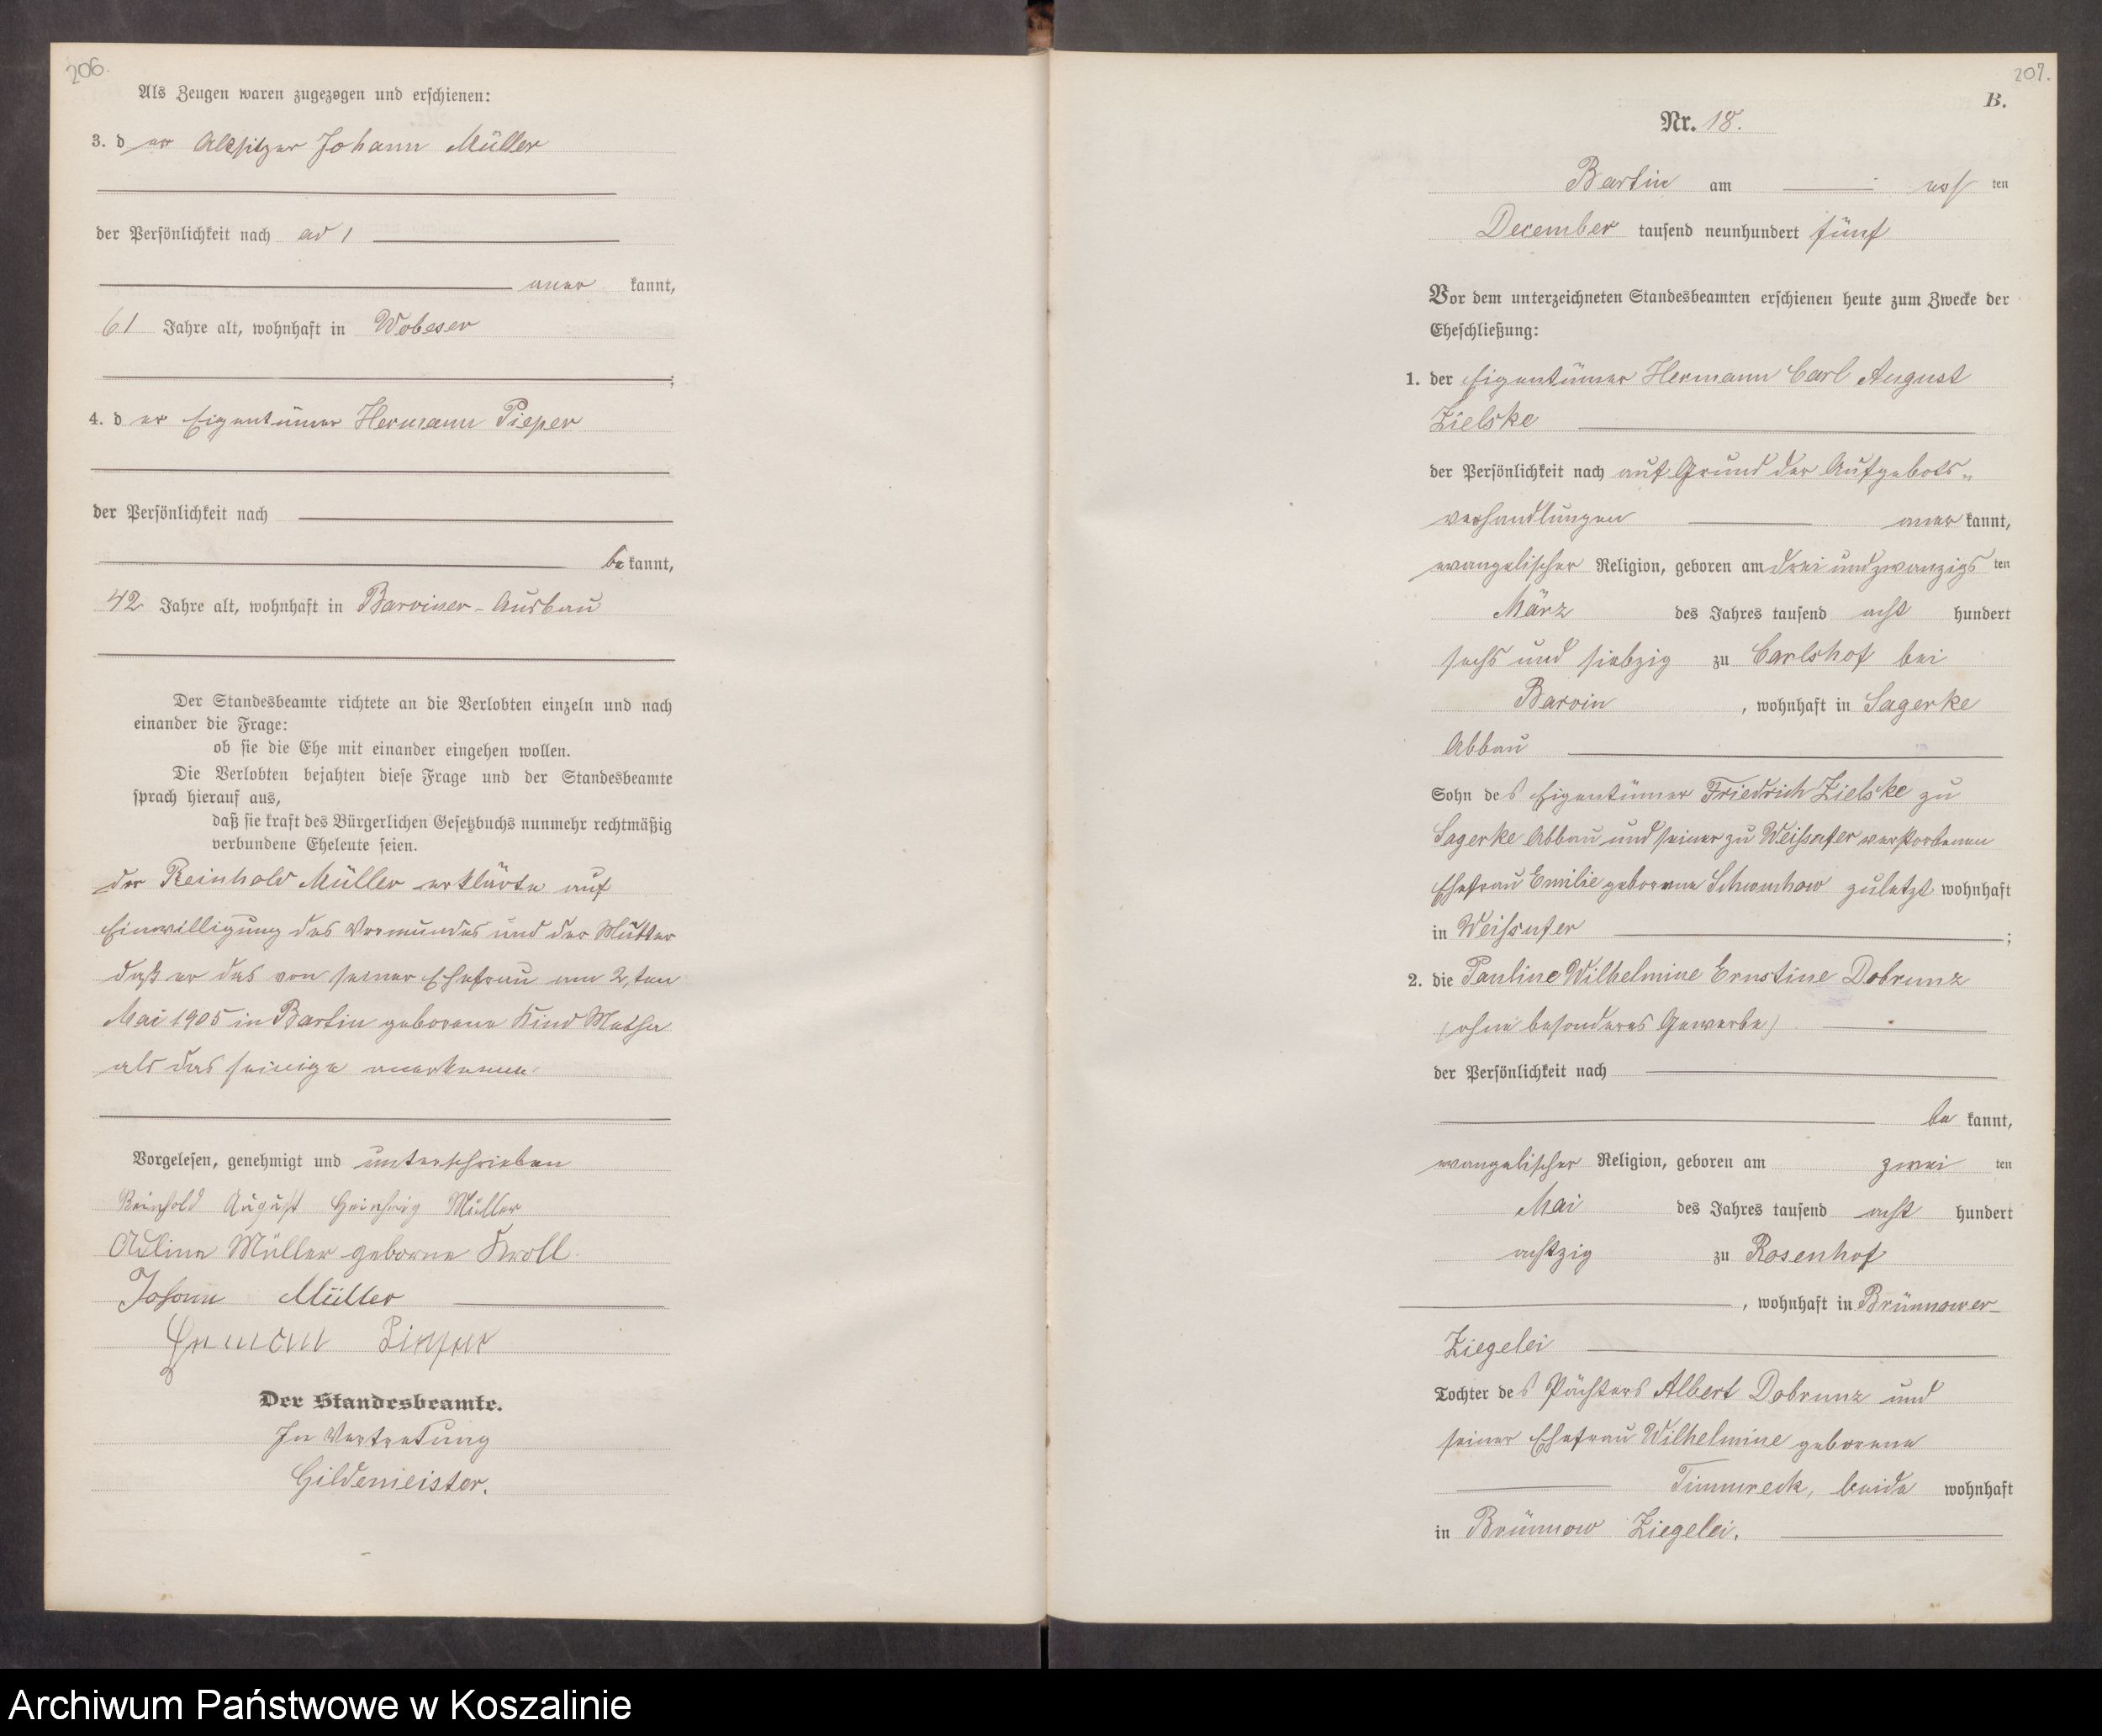 206.
Als Zeugen waren zugezogen und erschienen:
3. der Altsitzer Johann Müller
der Persönlichkeit nach ad 1
aner kannt,
61 Jahre alt, wohnhaft in Wobeser
;
4. der Eigentümer Hermann Pieper
der Persönlichkeit nach
be kannt,
42 Jahre alt, wohnhaft in Barviner-Ausbau
Der Standesbeamte richtete an die Verlobten einzeln und nach
einander die Frage:
ob sie die Ehe mit einander eingehen wollen.
Die Verlobten bejahten diese Frage und der Standesbeamte
sprach hierauf aus,
daß sie kraft des Bürgerlichen Gesetzbuchs nunmehr rechtmäßig
verbundene Eheleute seien.
der Reinhold Müller erklärte auf
Einwilligung des Vormundes und der Mutter
daß er das von seiner Ehefrau am 2,ten
Mai 1905 in Bartin geborene Kind
als das seinige anerkenne.
Vorgelesen, genehmigt und unterschrieben
Reinhold August Heinrig Müller
Müller geborne Kroll.
Johann Müller
Hermann Pieper
Der Standesbeamte.
In Vertretung
Gildemeister.
207.
B.
Nr. 18.
Bartin am ten
December tausend neunhundert fünf
Vor dem unterzeichneten Standesbeamten erschienen heute zum Zwecke der
Eheschließung:
1. der Eigentümer Hermann Carl August
Zielske
der Persönlichkeit nach auf Grund der Aufgebots-
verhandlungen aner kannt,
evangelischer Religion, geboren am dreiundzwanzigs ten
März des Jahres tausend acht hundert
sechs und siebzig zu Carlshof bei
Barvin, wohnhaft in Sagerke
Abbau
Sohn des Eigentümer Friedrich Zielske zu
Sagerke Abbau und seiner zu Weissufer verstorbenen
Ehefrau Emilie geborene zuletzt wohnhaft
in Weissufer ;
2. die Pauline Wilhelmine Ernstine Dobrunz
(ohne besonderes Gewerbe)
der Persönlichkeit nach
be kannt,
evangelischer Religion, geboren am zwei ten
Mai des Jahres tausend acht hundert
achtzig zu Rosenhof
, wohnhaft in Brünnower-
Ziegelei
Tochter des Pächters Albert Dobrunz und
seiner Ehefrau Wilhelmine geborene
Timmreck, beide wohnhaft
in Brünnow Ziegelei.
Archiwum Państwowe w Koszalinie